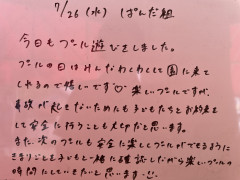 7/26 (水) ぱんだ組
今日もプール遊びをしました。
プールの日はみんなわくわくして園に来て
いるので嬉しいです♡ 楽しいプールですが、
事故が起きないためにも子どもたちとお約束を
して安全に行うことも大切だと思います。
また、次のプールも安全に楽しくプールができるように
きまりごとを子どもと一緒に確認しながら楽しいプールの
時間にしていきたいと思います